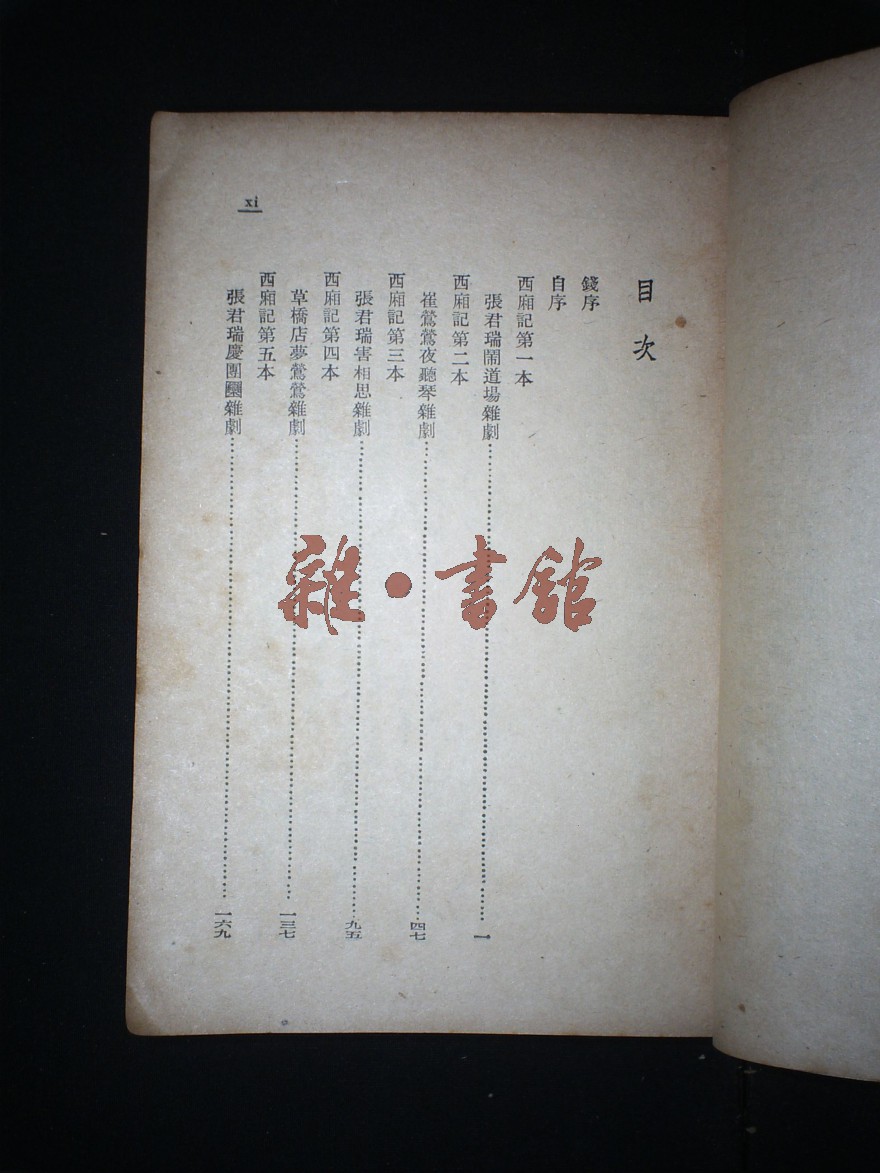 目次
錢序
自序
西廂記第一本
張君瑞鬧道場雜劇……一
西廂記第二本
崔鶯鶯夜聽琴雜劇……四七
西廂記第三本
張君瑞害相思雜劇……九五
西廂記第四本
草橋店夢鶯鶯雜劇……一三七
西廂記第五本
張君瑞慶團圞雜劇……一六九
xi
雜·書館